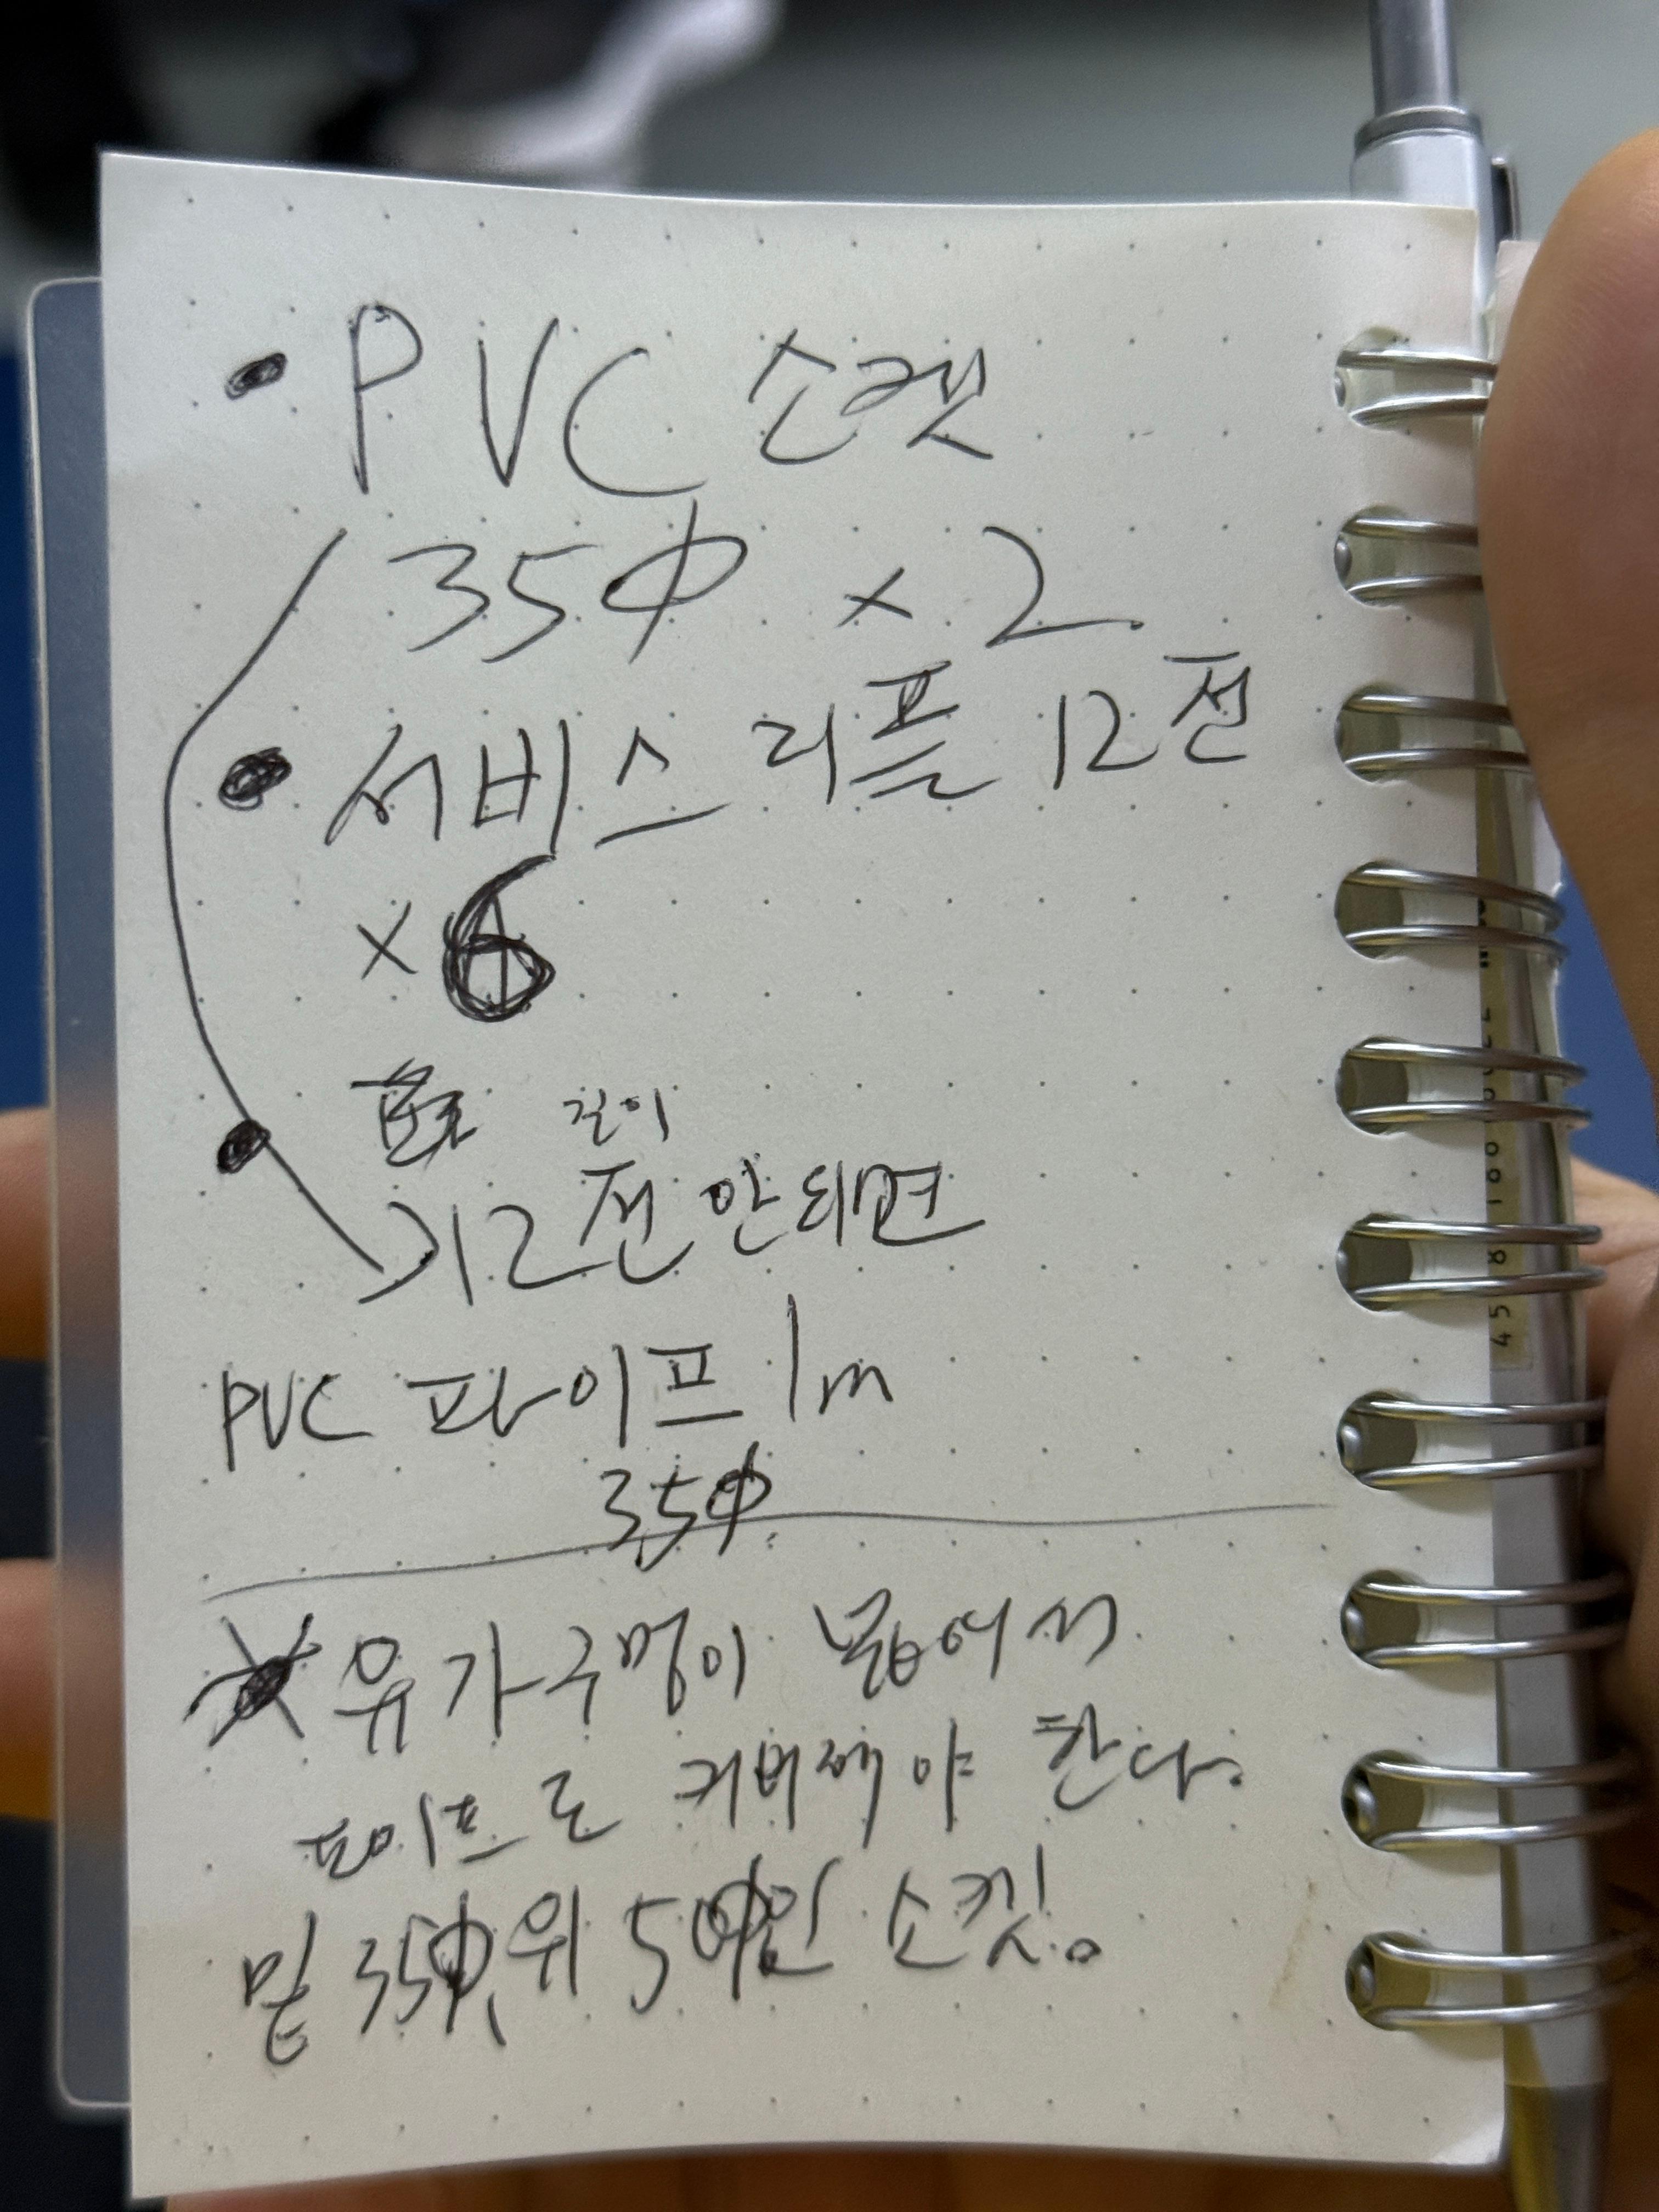 • PVC 소켓
35Ø × 2.
• 서비스 리플 12전
× 6
길이
• 12전 안되면
PVC 파이프 1m
35Ø.
유가 구멍이 넓어서
테이프로 커버해야 한다.
밑 35Ø, 위 50Ø인 소킷.